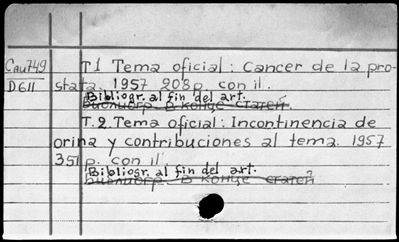 Cau749 T.1 Tema oficial: Cancer de la pro-
D611 stata. 1957 208 p. con il.
Bibliogr. al fin del art.
библиогр. в конце статей.
T.2. Tema oficial: Incontinencia de
orina y contribuciones al tema. 1957
351 p. con il
Bibliogr. al fin del art.
библиогр. в конце статей